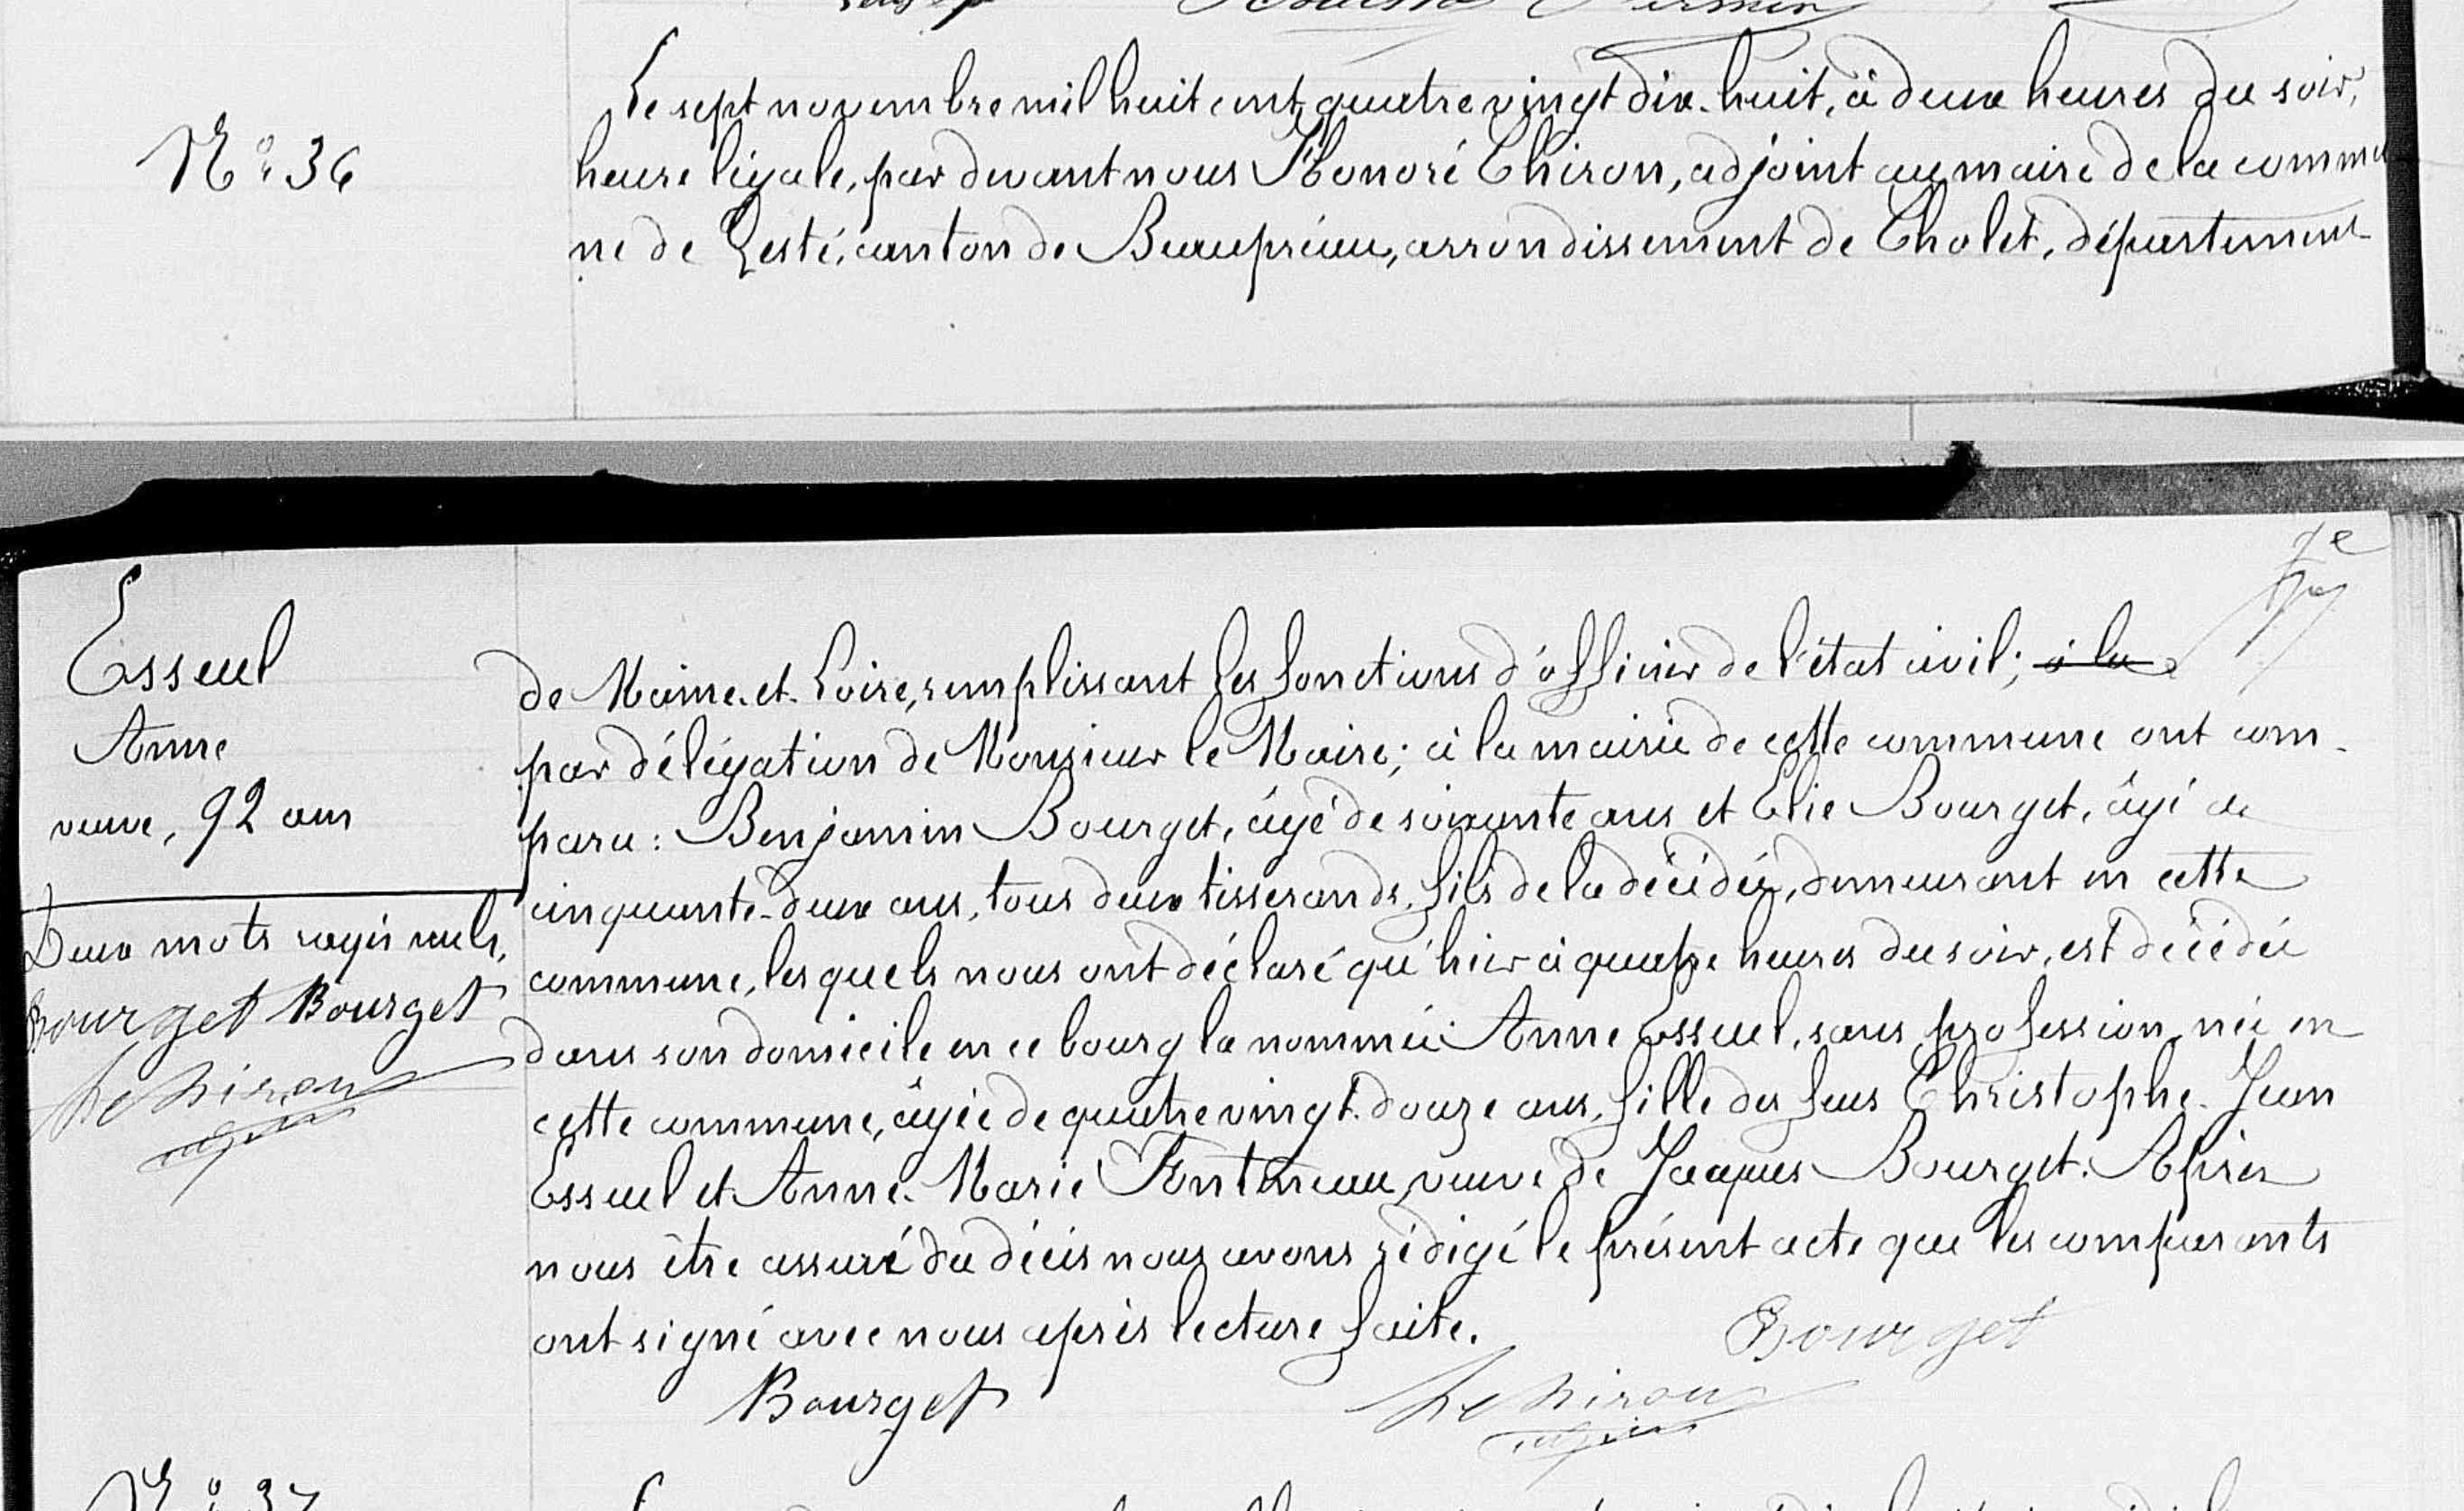 Le sept novembre mil huit cent quatre vingt dix-huit, à deux heures du soir,
N° 36
heure légale, par devant nous Honoré Chiron, adjoint au maire de la commu
ne de Gesté, canton de Beaupréau, arrondissement de Cholet, département
Esseul
Anne
veuve, 92 ans
de Maine-et-Loire, remplissant les fonctions d'officier de l'état civil; à la
par délégation de Monsieur le Maire; à la mairie de cette commune ont com-
paru: Benjamin Bourget, âgé de soixante ans et Elie Bourget, âgé de
cinquante-deux ans, tous deux tisserands, fils de la décédée, demeurant en cette
commune, lesquels nous ont déclaré qu'hier à quatre heures du soir, est décédée
dans son domicile en ce bourg la nommée Anne Esseul, sans profession, née en
cette commune, âgée de quatre vingt-douze ans, fille des feus Christophe-Jean
Esseul et Anne-Marie Fonteneau, veuve de Jacques Bourget. Après
nous être assuré du décès nous avons rédigé le présent acte que les comparants
ont signé avec nous après lecture faite.
Deux mots rayés nuls.
Bourget Bourget
hChiron
Bourget
Bourget
hChiron
N° 37